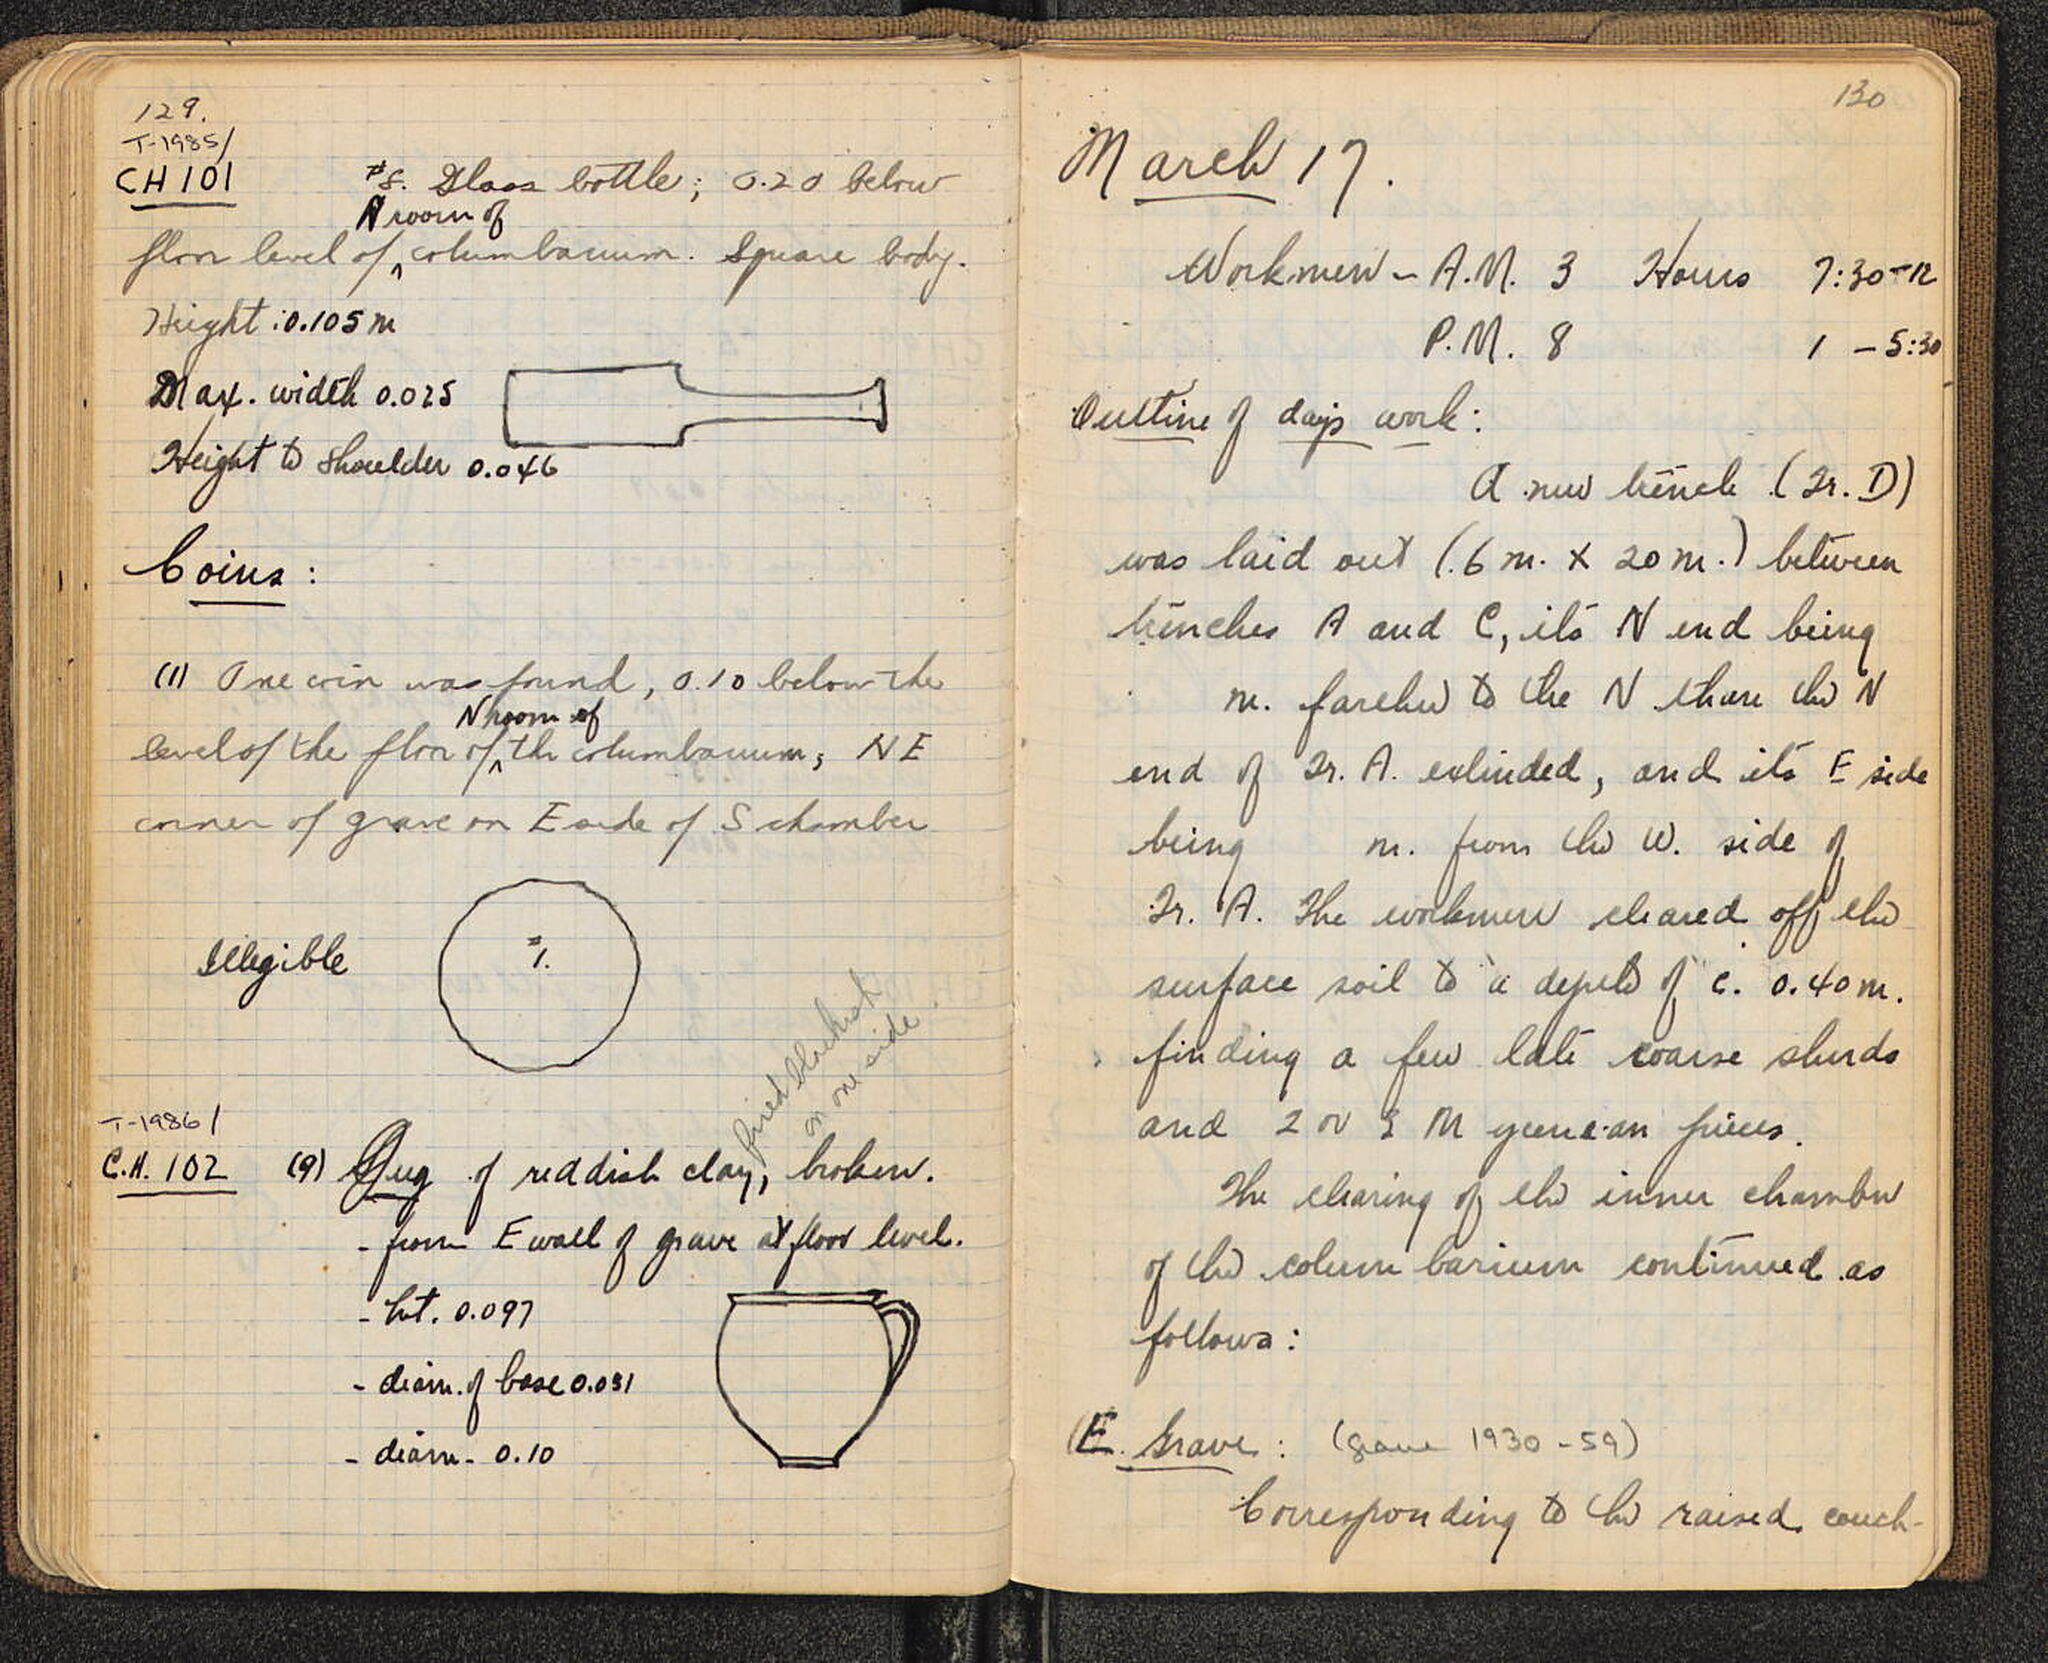 129.
T-1985/
CH 101
#8. Glass bottle; 0.20 below
N room of
floor level of ^ columbarium. Square body.
Height : 0.105 m
Max. width 0.025
Height to shoulder 0.046
Coins :
(1) One coin was found, 0.10 below the
N room of
level of the floor of ^ the columbarium; NE
corner of grave on E side of S chamber
Illegible
#1.
fired blackish
on one side.
T-1986/
C.H. 102
(9) Jug of reddish clay, broken.
- from E wall of grave at floor level.
- ht. 0.097
- diam. of base 0.031
- diam - 0.10
130
March 17.
Workmen - A.M. 3 Hours 7:30-12
P.M. 8 1 - 5:30
Outline of days work :
A new trench (Tr. D)
was laid out (.6 m. x 20 m.) between
trenches A and C, its N end being
m. farther to the N than the N
end of Tr. A. extended, and its E side
being m. from the W. side of
Tr. A. The workmen cleared off the
surface soil to a depth of c. 0.40 m.
finding a few late coarse sherds
and 2 or 3 Mycenean pieces.
The clearing of the inner chamber
of the columbarium continued as
follows :
E. Grave : (grave 1930-59)
Corresponding to the raised couch-